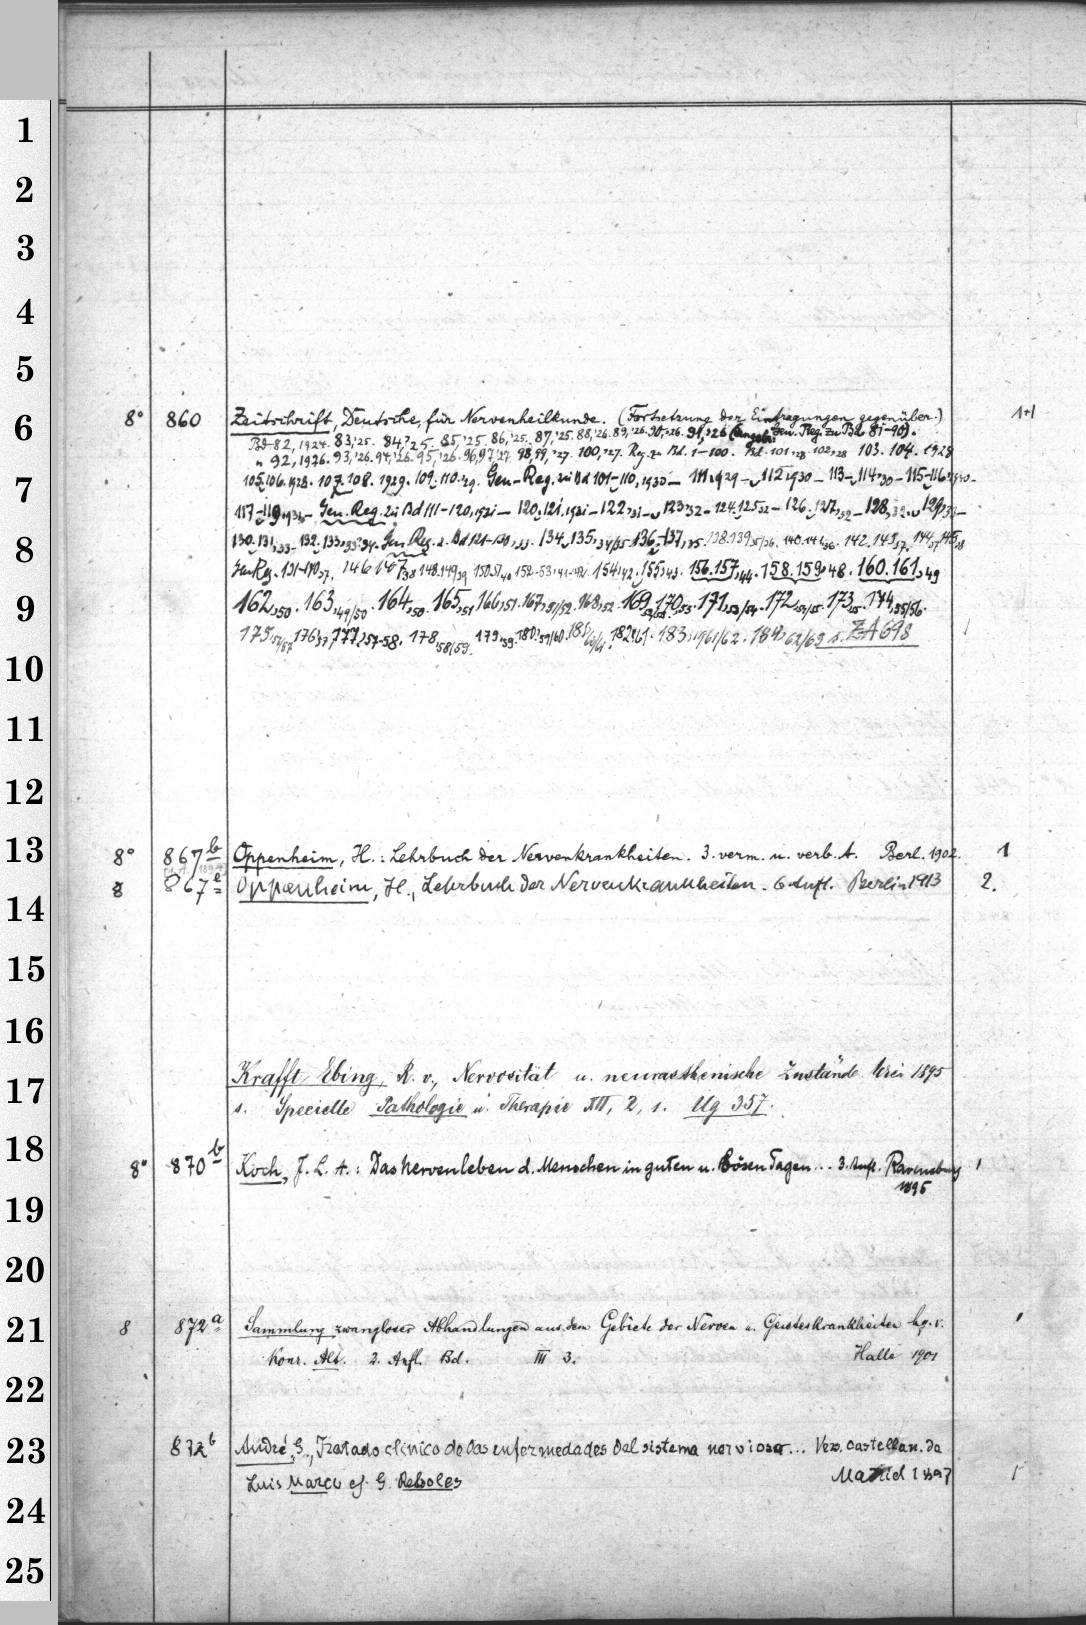 1
2
3
4
5
6
7
8
9
10
11
12
13
14
15
16
17
18
19
20
21
22
23
24
25
8° 860 Zeitschrift, Deutsche, für Nervenheilkunde. (Fortsetzung der Eintragungen gegenüber.) 1+1
Bd 82, 1924. 83,'25. 84,'25. 85,'25. 86,'25. 87,'25. 88,'26. 89,'26. 90,'26. 91,'26 Gen. Reg. zu Bd. 81-90).
" 92, 1926. 93,'26. 94,'26. 95,'26. 96,97,'27. 98,99,'27. 100,'27. Reg. zu Bd. 1-100. Bd. 101,28 102,28 103. 104. 1928
105,106.1928. 107.108. 1929. 109.110.29. Gen-Reg. zu Bd 101-110, 1930 — 111,1929 - 112,1930 — 113-114,30 — 115-116,1930-
117-119,1931- Gen. Reg. zu Bd 111-120,1931 — 120.121.1931 — 122,31 - 123,32 - 124.125,32 - 126.127,32 — 128,32. 129,33 —
130.131,33 - 132.133,33/34 - Gen. Reg. z. Bd 121-130,33. 134.135,34/35 136-137,35. 138.139,35/36. 140.141,36. 142.143,37. 144,37 145,38
Gen Reg. 131-140,37. 146 147,38 148.149,39 150.51,40 152-53,41-42. 154,42. 155,43. 156.157,44. 158.159,48. 160.161,49
162,50. 163,49/50. 164,50. 165,51 166,51. 167,51/52. 168,52. 169,52/53. 170,53. 171,53/54. 172,54/55. 173,55. 174,55/56.
175,56/57 176,57 177,57-58. 178,58/59. 179,59. 180,59/60. 181,60/61. 182,61. 183,1961/62. 184,62/63 s. ZA 698
8° 867b Oppenheim, H.: Lehrbuch der Nervenkrankheiten. 3. verm. u. verb. A. Berl. 1902. 1
8 867e Oppenheim, H., Lehrbuch der Nervenkrankheiten. 6 Aufl. Berlin 1913 2.
Krafft Ebing, R. v., Nervosität u. neurasthenische Zustände Wien 1895
s. Specielle Pathologie u. Therapie XII, 2, s. Ug 357.
8° 870b Koch, J. L. A.: Das Nervenleben d. Menschen in guten u. bösen Tagen... 3. Aufl. Ravensburg 1
1895
8 872a Sammlung zwangloser Abhandlungen aus dem Gebiete der Nerven u. Geisteskrankheiten hg. v. 1
Konr. Alt. 2. Aufl. Bd. III 3. Halle 1901
872b André, G., Tratado clinico de las enfermedades del sistema nervioso... Vers. castellan. da
Luis Marco et G. Reboles Madrid 1897 1